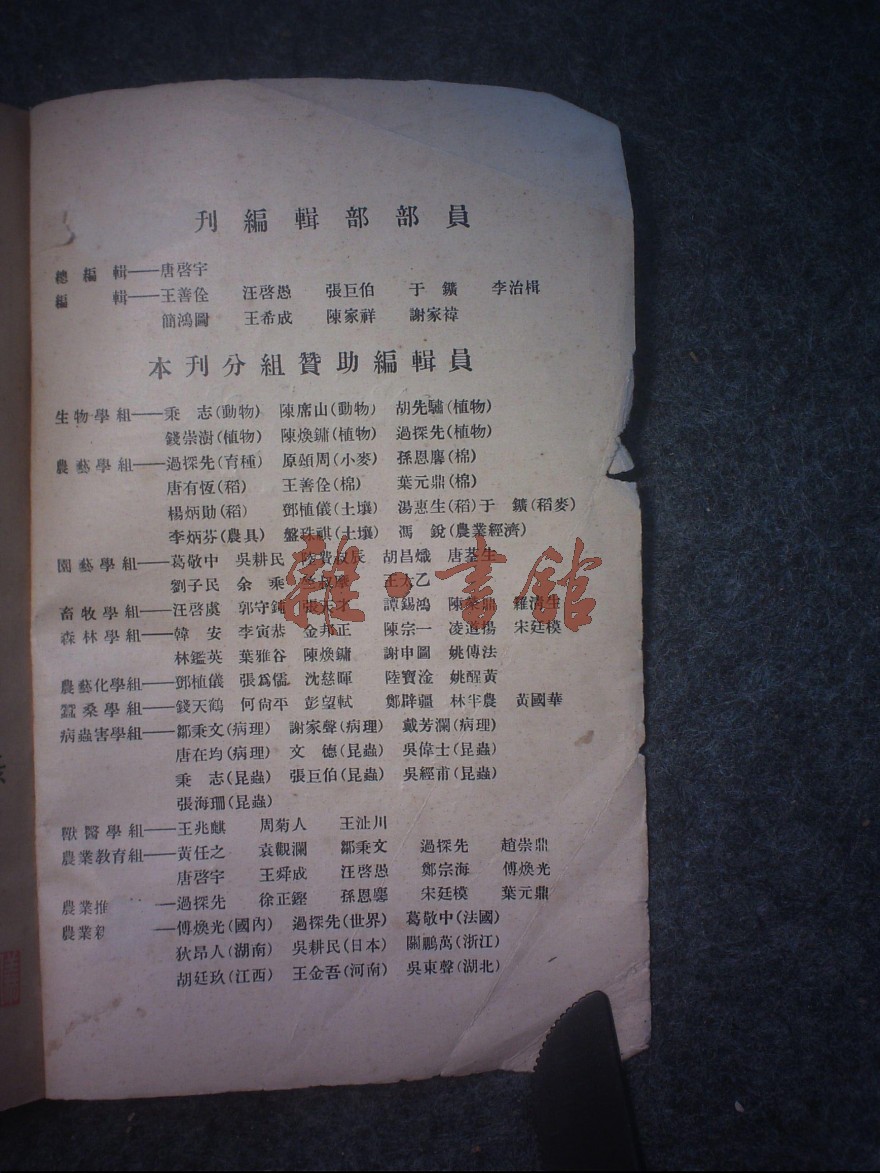 刊編輯部部員
總編輯——唐啓宇
編輯——王善佺 汪啓愚 張巨伯 于鑛 李治楫
簡鴻圖 王希成 陳家祥 謝家禕
本刊分組贊助編輯員
生物學組——秉志(動物) 陳席山(動物) 胡先驌(植物)
錢崇澍(植物) 陳煥鏞(植物) 過探先(植物)
農藝學組——過探先(育種) 原頌周(小麥) 孫恩麐(棉)
唐有恆(稻) 王善佺(棉) 葉元鼎(棉)
楊炳勛(稻) 鄧植儀(土壤) 湯惠生(稻)于鑛(稻麥)
李炳芬(農具) 盤珠祺(土壤) 馮銳(農業經濟)
園藝學組——葛敬中 吳耕民 陸費叔辰 胡昌熾 唐荃生
劉子民 余乘 王太乙
畜牧學組——汪啓虞 郭守純 張天才 譚錫鴻 陳榮鼎 羅清生
森林學組——韓安 李寅恭 金邦正 陳宗一 凌道揚 宋廷模
林鑑英 葉雅谷 陳煥鏞 謝申圖 姚傳法
農藝化學組——鄧植儀 張爲儒 沈慈暉 陸寶淦 姚醒黃
蠶桑學組——錢天鶴 何尙平 彭望軾 鄭辟疆 林芈農 黃國華
病蟲害學組——鄒秉文(病理) 謝家聲(病理) 戴芳瀾(病理)
唐在均(病理) 文德(昆蟲) 吳偉士(昆蟲)
秉志(昆蟲) 張巨伯(昆蟲) 吳經甫(昆蟲)
張海珊(昆蟲)
獸醫學組——王兆麒 周菊人 王沚川
農業教育組——黃任之 袁觀瀾 鄒秉文 過探先 趙崇鼎
唐啓宇 王舜成 汪啓愚 鄭宗海 傅煥光
農業推 —過探先 徐正鏗 孫恩麐 宋廷模 葉元鼎
農業 —傅煥光(國內) 過探先(世界) 葛敬中(法國)
狄昂人(湖南) 吳耕民(日本) 關鵬萬(浙江)
胡廷玖(江西) 王金吾(河南) 吳東聲(湖北)
雜·書館